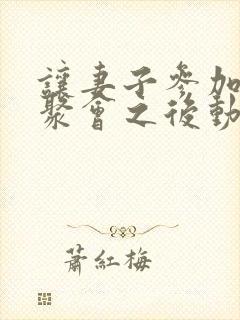 讓妻子參加
聚會之後動
蕭紅梅